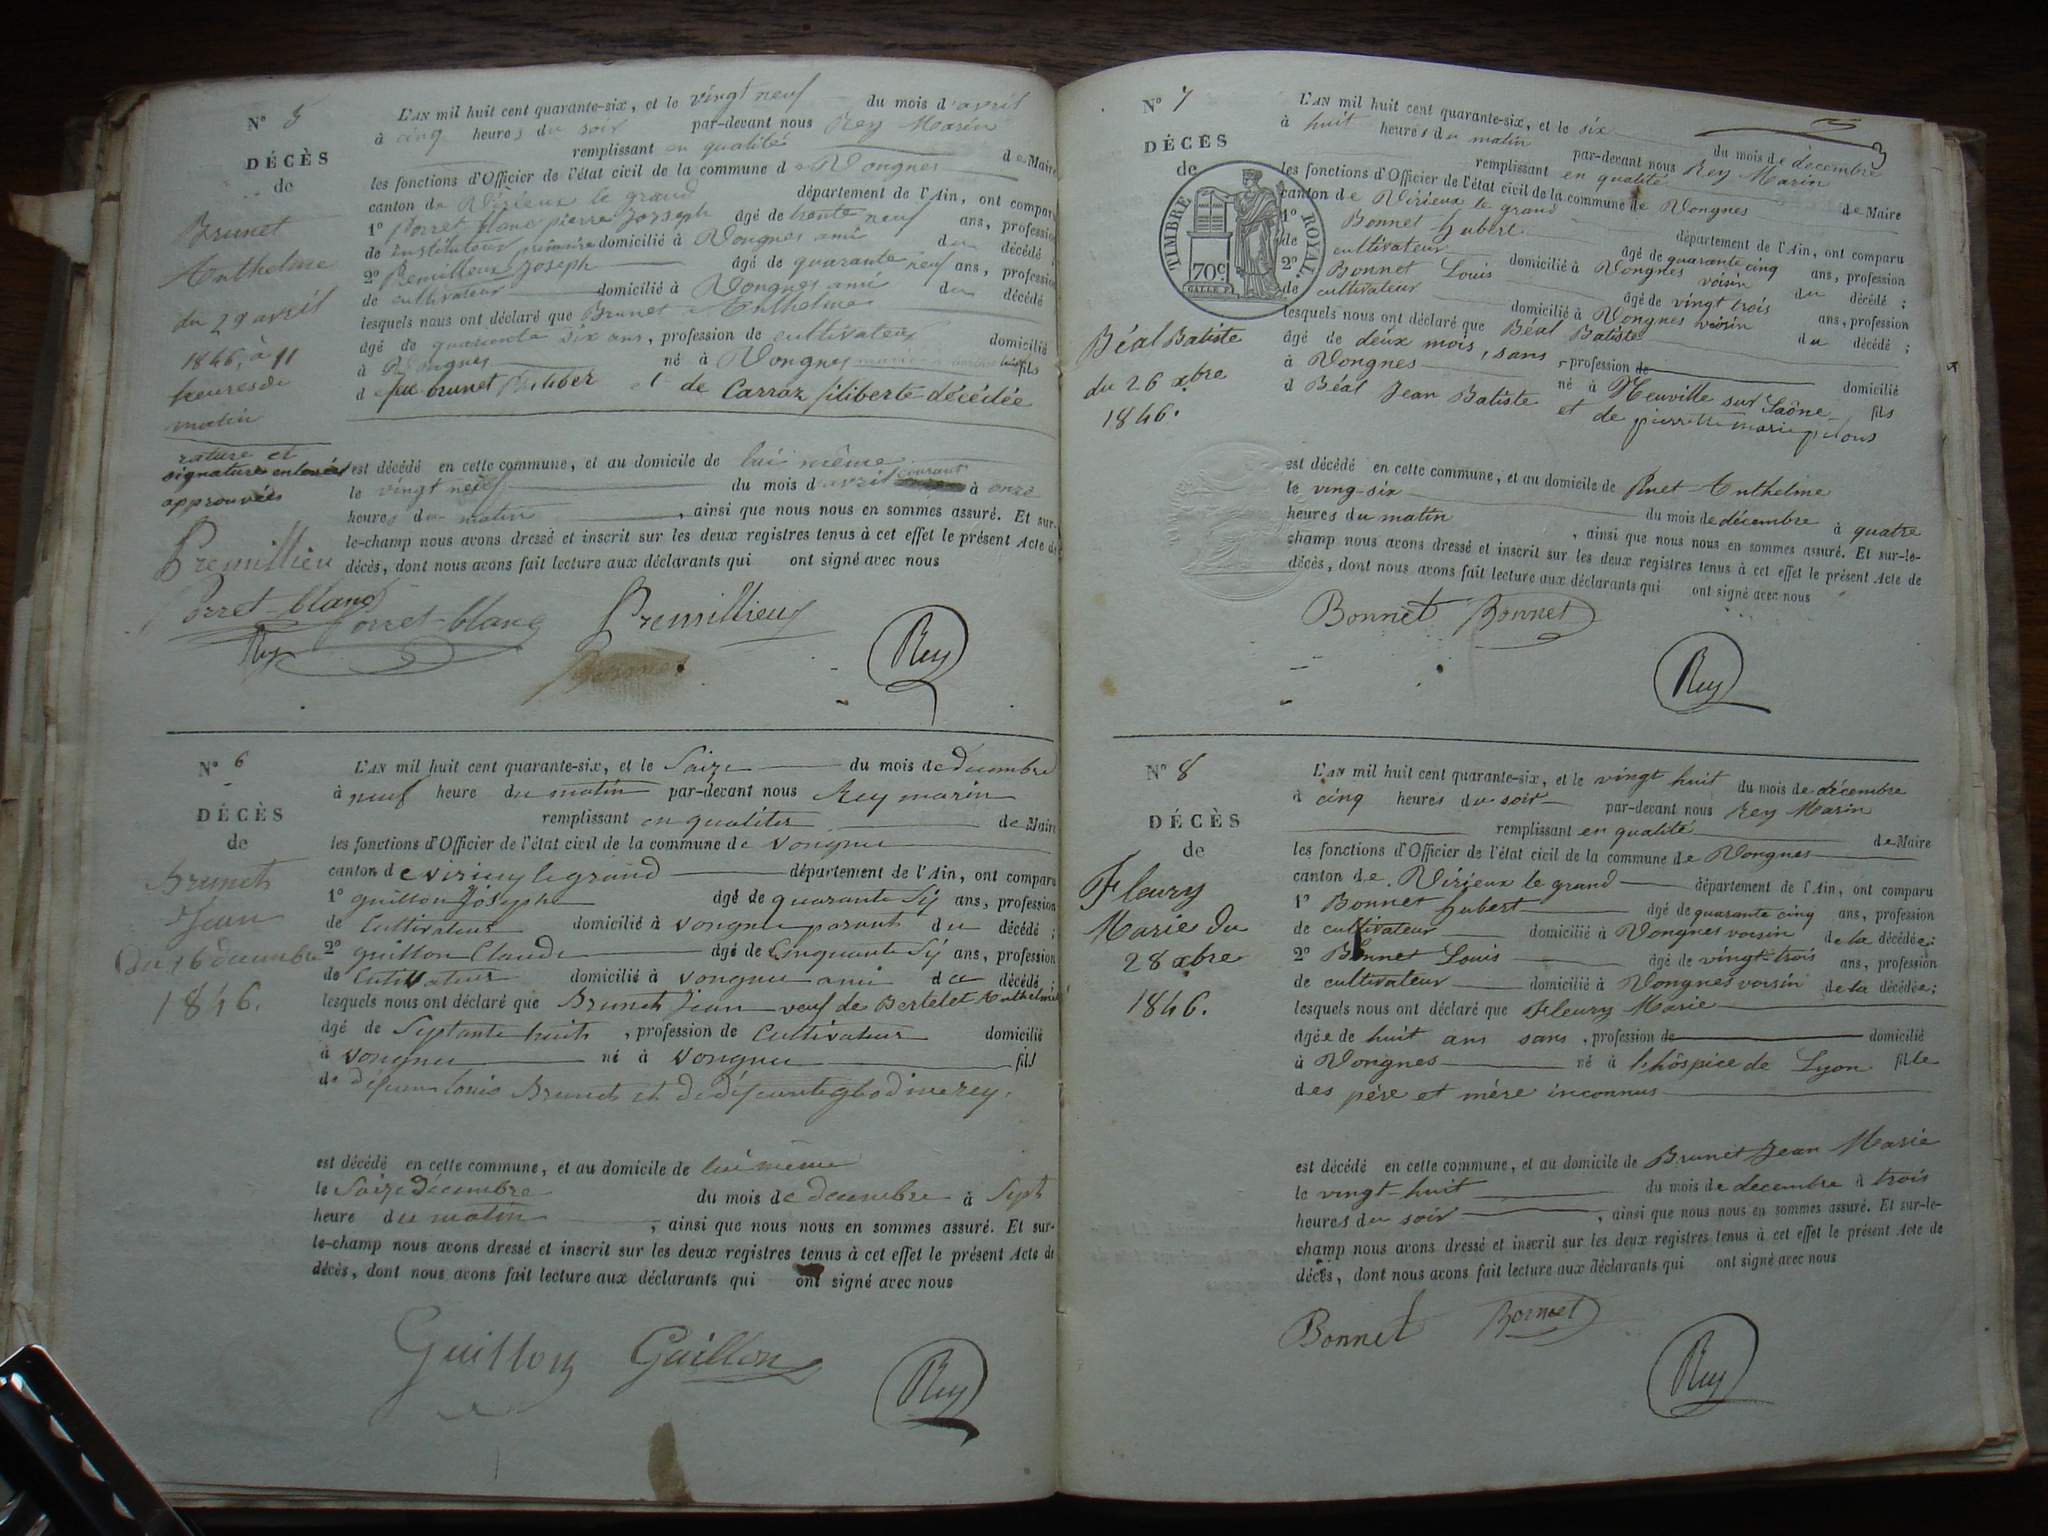 N° 5
DÉCÈS
de
Brunet
Anthelme
du 29 avril
1846, à 11
heures de
matin
rature et
signature enlevées
approuvées
Premillieu
Porret-blanc
Rey
L'AN mil huit cent quarante-six, et le vingt neuf du mois d'avril
à cinq heures du soir par-devant nous Rey Marin
remplissant en qualité de Maire
les fonctions d'Officier de l'état civil de la commune de Vongnes
canton de Virieux le grand département de l'Ain, ont comparu
1° Porret blanc pierre Joseph âgé de trente neuf ans, profession
de instituteur primaire domicilié à Vongnes ami du décédé ;
2° Premillieux Joseph âgé de quarante neuf ans, profession
de cultivateur domicilié à Vongnes ami du décédé
lesquels nous ont déclaré que Brunet Anthelme
âgé de quarante six ans, profession de cultivateur domicilié
à Vongnes né à Vongnes fils
de feu brunet et de Carraz filiberte décédée
est décédé en cette commune, et au domicile de lui même
le vingt neuf du mois d'avril courant à onze
heures du matin, ainsi que nous nous en sommes assuré. Et sur-
le-champ nous avons dressé et inscrit sur les deux registres tenus à cet effet le présent Acte de
décès, dont nous avons fait lecture aux déclarants qui ont signé avec nous
Porret-blanc Premillieux
Rey
N° 6
DÉCÈS
de
Brunet
Jean
du 16 decembre
1846.
L'AN mil huit cent quarante-six, et le Saize du mois de decembre
à neuf heure du matin par-devant nous Rey marin
remplissant en qualiter de Maire
les fonctions d'Officier de l'état civil de la commune de vongnes
canton de virieu le grand département de l'Ain, ont comparu
1° guillon Joseph âgé de quarante Six ans, profession
de Cultivateur domicilié à vongnes parant du décédé ;
2° guillon Claude âgé de Cinquante Six ans, profession
de Cultivateur domicilié à vongnes ami du décédé ;
lesquels nous ont déclaré que Brunet Jean veuf de Bertelet Anthelmie
âgé de Septante huit, profession de Cultivateur domicilié
à vongnes né à vongnes fils
de défunt louis Brunet et de défunte rey.
est décédé en cette commune, et au domicile de lui même
le Saize décembre du mois de decembre à Sept
heure du matin, ainsi que nous nous en sommes assuré. Et sur-
le-champ nous avons dressé et inscrit sur les deux registres tenus à cet effet le présent Acte de
décès, dont nous avons fait lecture aux déclarants qui ont signé avec nous
Guillon Guillon
Rey
3
N° 7
DÉCÈS
de
TIMBRE ROYAL.
70c.
Béal Batiste
du 26 xbre
1846.
L'AN mil huit cent quarante-six, et le six du mois de décembre
à huit heures du matin par-devant nous Rey Marin
remplissant en qualité de Maire
les fonctions d'Officier de l'état civil de la commune de Vongnes
canton de Virieux le grand département de l'Ain, ont comparu
1° Bonnet hubert âgé de quarante cinq ans, profession
de cultivateur domicilié à Vongnes voisin du décédé ;
2° Bonnet Louis âgé de vingt trois ans, profession
de cultivateur domicilié à Vongnes voisin du décédé ;
lesquels nous ont déclaré que Béal Batiste
âgé de deux mois, sans profession de domicilié
à Vongnes né à Neuville sur Saône fils
d Béal Jean Batiste et de pierrette marie
est décédé en cette commune, et au domicile de Pinet Anthelme
le ving-six du mois de décembre à quatre
heures du matin, ainsi que nous nous en sommes assuré. Et sur-le-
champ nous avons dressé et inscrit sur les deux registres tenus à cet effet le présent Acte de
décès, dont nous avons fait lecture aux déclarants qui ont signé avec nous
Bonnet Bonnet
Rey
N° 8
DÉCÈS
de
Fleury
Marie du
28 xbre
1846.
L'AN mil huit cent quarante-six, et le vingt huit du mois de décembre
à cinq heures du soir par-devant nous Rey Marin
remplissant en qualité de Maire
les fonctions d'Officier de l'état civil de la commune de Vongnes
canton de Virieux le grand département de l'Ain, ont comparu
1° Bonnet hubert âgé de quarante cinq ans, profession
de cultivateur domicilié à Vongnes voisin de la décédée;
2° Bonnet Louis âgé de vingt-trois ans, profession
de cultivateur domicilié à Vongnes voisin de la décédée;
lesquels nous ont déclaré que Fleury Marie
âgée de huit ans sans, profession de domicilié
à Vongnes né à l'hôspice de Lyon fille
des pére et mére inconnus
est décédé en cette commune, et au domicile de Brunet Jean Marie
le vingt-huit du mois de decembre à trois
heures du soir, ainsi que nous nous en sommes assuré. Et sur-le-
champ nous avons dressé et inscrit sur les deux registres tenus à cet effet le présent Acte de
décès, dont nous avons fait lecture aux déclarants qui ont signé avec nous
Bonnet Bonnet
Rey